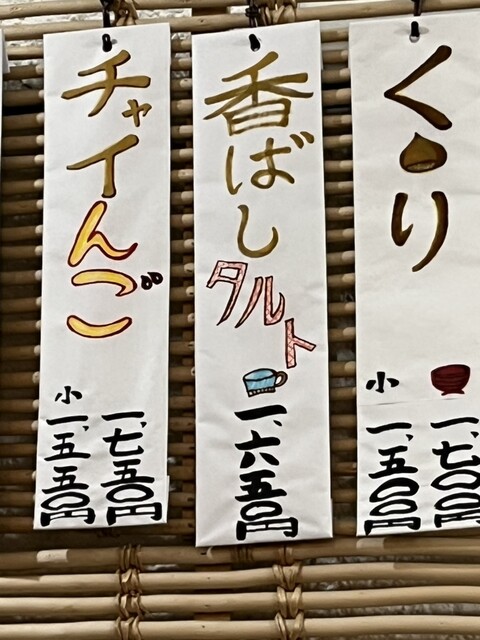 くり
一、七〇〇円
小
一、五〇〇円
香ばし
タルト
一、六五〇円
チャイんご
一、七五〇円
小
一、五五〇円